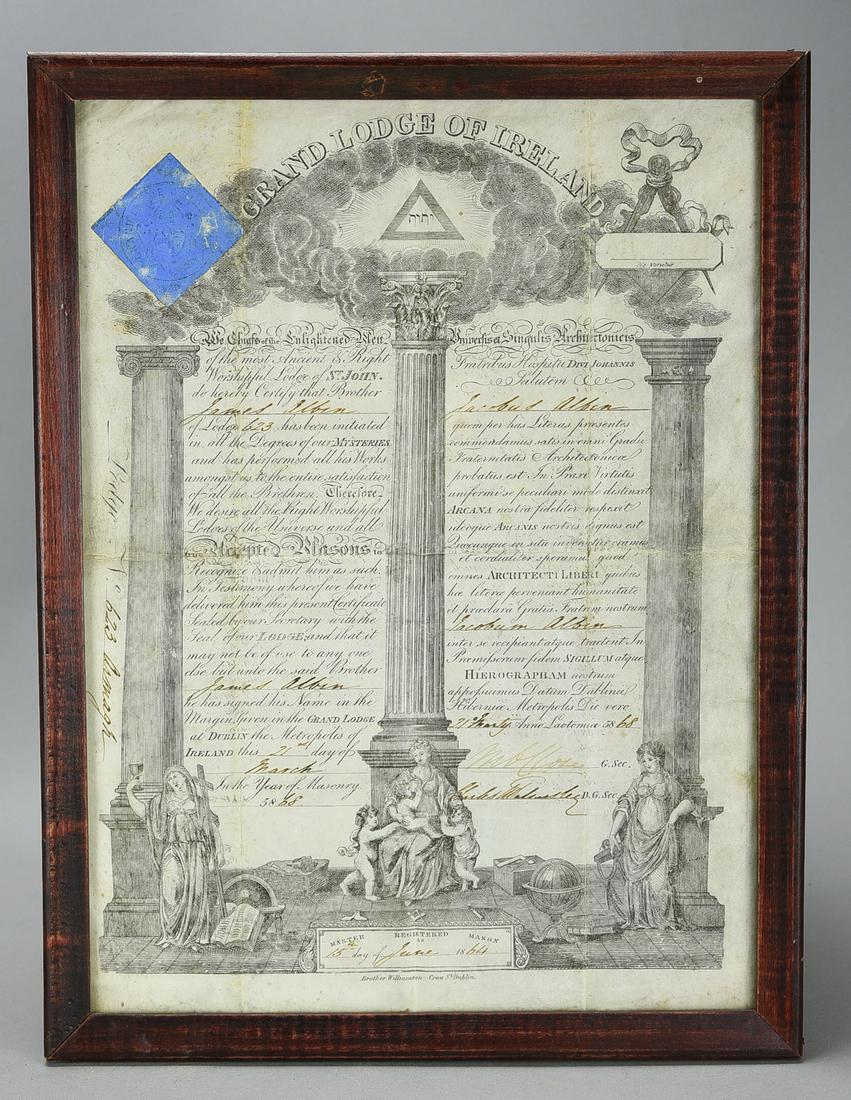 GRAND LODGE OF IRELAND
יהוה
Ne Varietur
We Chiefs of the Enlightened Men
of the most Ancient & Right
Worshipful Lodge of ST. JOHN.
do hereby Certify that Brother
James Albin
of Lodge 623 has been initiated
in all the Degrees of our MYSTERIES
and has performed all his Works
amongst us to the entire satisfaction
of all the Brethren. Therefore
We desire all the Right Worshipful
Lodges of the Universe and all
Accepted Masons to
Recognize & admit him as such.
In Testimony whereof we have
delivered him this present Certificate
Sealed by our Secretary with the
Seal of our LODGE, and that it
may not be of use to any one
else but unto the said Brother
James Albin
he has signed his Name in the
Margin, Given in the GRAND LODGE
at DUBLIN the Metropolis of
IRELAND this 21st day of
March
In the Year of Masonry
5868
Universis et Singulis Architectonicis
Fratribus Hospitii DIVI JOHANNIS
Salutem
Jacobus Albin
quem per has Literas præsentes
commendamus satis in omni Gradu
Fraternitatis Architectonicæ
probatus est In Praxi Virtutis
uniformi se peculiari modo distinxit
ARCANA nostra fideliter respexit
ideoque ARCANIS nostris dignus est
Quocunque in situ inveniatur oramus
et cordialiter speramus quod
omnes ARCHITECTI LIBERI quibus
hæ literæ perveniant humanitate
et præclarâ Gratia Fratrem nostrum
Jacobum Albin
inter se recipiant atque tractent In
Præmissorum fidem SIGILLUM atque
HIEROGRAPHAM nostrum
apposuimus Datum Dublinii
Hiberniæ Metropolis Die vero
21 Anno Laotomiæ 5868
G. Sec.
D. G. Sec.
No. 623 Armagh
MASTER REGISTERED AS MASON
15th day of June 1864
Brother Williamson - Crow St. Dublin.